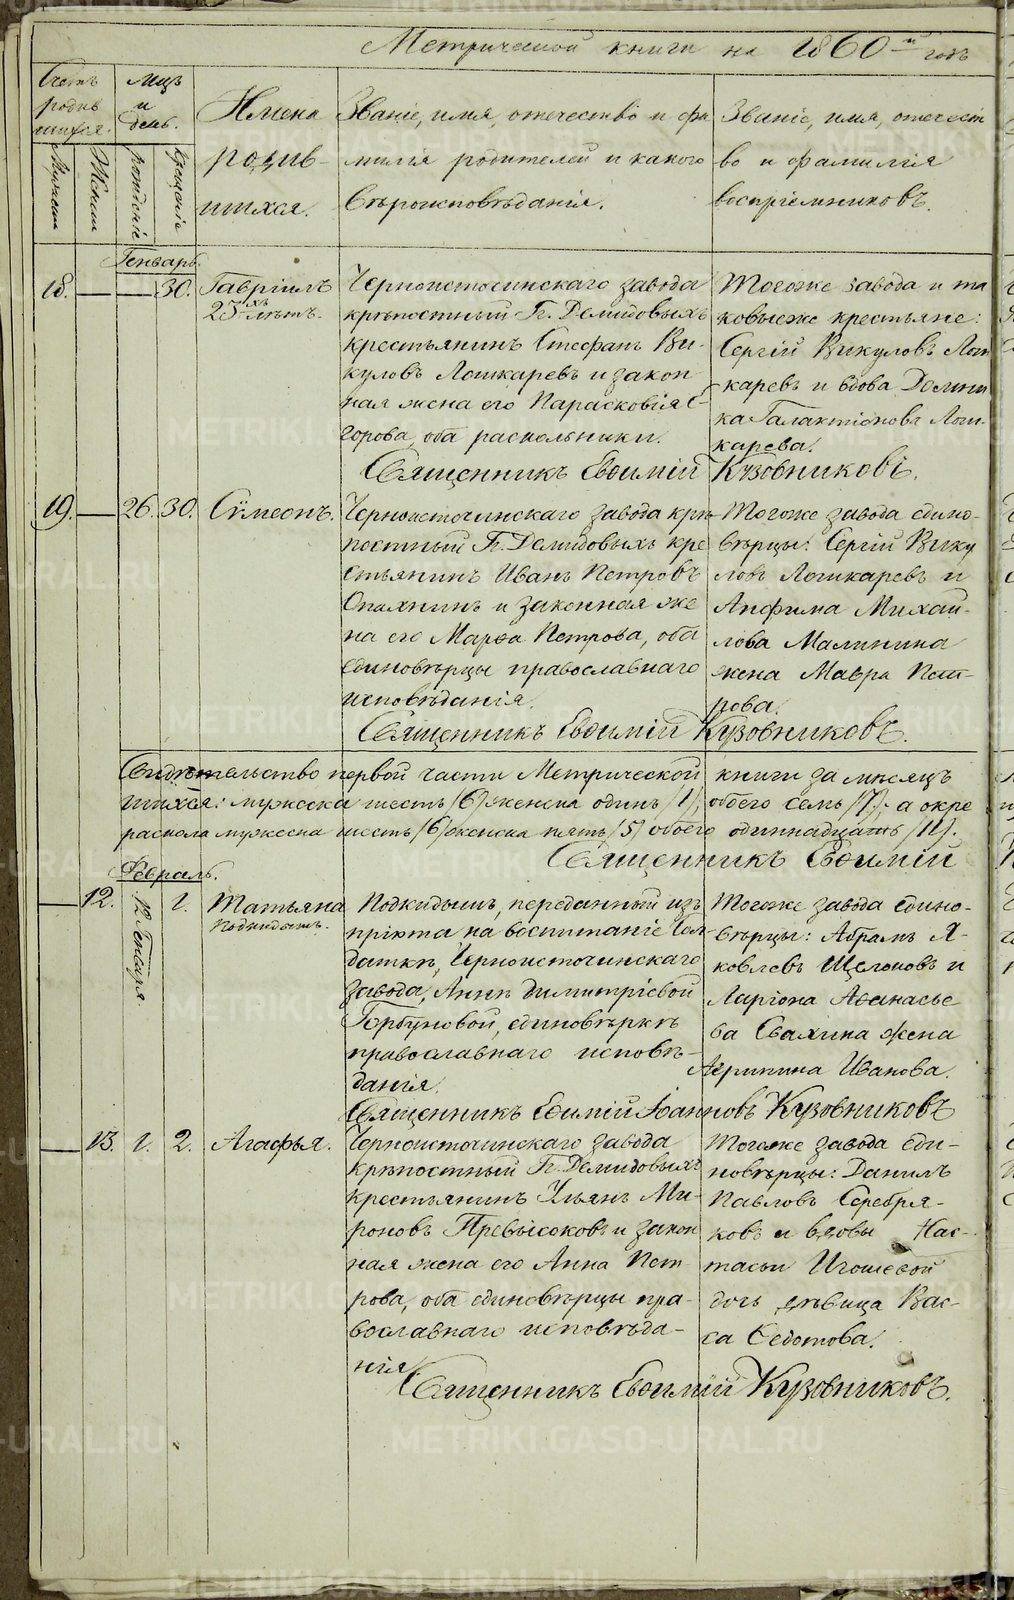 Метрической книги на 1860 й годъ
Счетъ родив шихся.
Мужеска
Женска
Мцъ и день.
рожденіе
крещеніе
Имена родив- шихся.
Званіе, имя, отечество и фа
милія родителей и какого
вѣроисповѣданія.
Званіе, имя, отечест
во и фамилія
воспріемниковъ.
Генварь
18. — — 30.
Гавріилъ
25 хъ лѣтъ.
Черноисточинскаго завода
крѣпостный Гг. Демидовыхъ
крестьянинъ Стефанъ Ви-
куловъ Лошкаревъ и закон
ная жена его Парасковія Е-
горова, оба раскольники.
Тогоже завода и та
ковыеже крестьяне:
Сергій Викуловъ Лош
каревъ и вдова Домни
ка Галактіонова Лош-
карева.
Священникъ Евѳимій Кузовниковъ.
19. — 26. 30. Сѵмеонъ.
Черноисточинскаго завода крѣ-
постный Гг. Демидовыхъ кре
стьянинъ Иванъ Петровъ
Опалнинъ и законная же
на его Марѳа Петрова, оба
единовѣрцы православнаго
исповѣданія.
Тогоже завода едино-
вѣрцы: Сергій Вику
ловъ Лошкаревъ и
Анфима Михай-
лова Малинина
жена Мавра Пет-
рова.
Священникъ Евѳимій Кузовниковъ.
Свидѣтельство первой части Метрической книги за мѣсяцъ
шихся: мужеска шесть /6/ женска одинъ /1/, обоего семь /7/; а окре
раскола мужеска шесть /6/ женска пять /5/ обоего одиннадцать /11/.
Священникъ Евѳимій
Февраль.
— 12. 12 Генваря 1. Татьяна
Подкидышъ.
Подкидышъ, переданный изъ
пріюта на воспитаніе Сол
даткѣ, Черноисточинскаго
завода, Аннѣ Димитріевой
Горбуновой, единовѣркѣ
православнаго исповѣ-
данія.
Тогоже завода едино-
вѣрцы: Абрамъ Я-
ковлевъ Щелоковъ и
Ларіона Аѳанасье
ва Свахина жена
Агрипина Иванова.
Священникъ Евѳимій Іоанновъ Кузовниковъ
— 13. 1. 2. Агафья.
Черноисточинскаго завода
крѣпостный Гг. Демидовыхъ
крестьянинъ Ульянъ Ми-
роновъ Превысоковъ и закон
ная жена его Анна Пет-
рова, оба единовѣрцы пра-
вославнаго исповѣда-
нія.
Тогоже завода еди-
новѣрцы: Данилъ
Павловъ Серебря-
ковъ и вдовы Нас-
тасьи Игошевой
дочь дѣвица Вас-
са Ѳедотова.
Священникъ Евѳимій Кузовниковъ.
METRIKI.GASO-URAL.RU